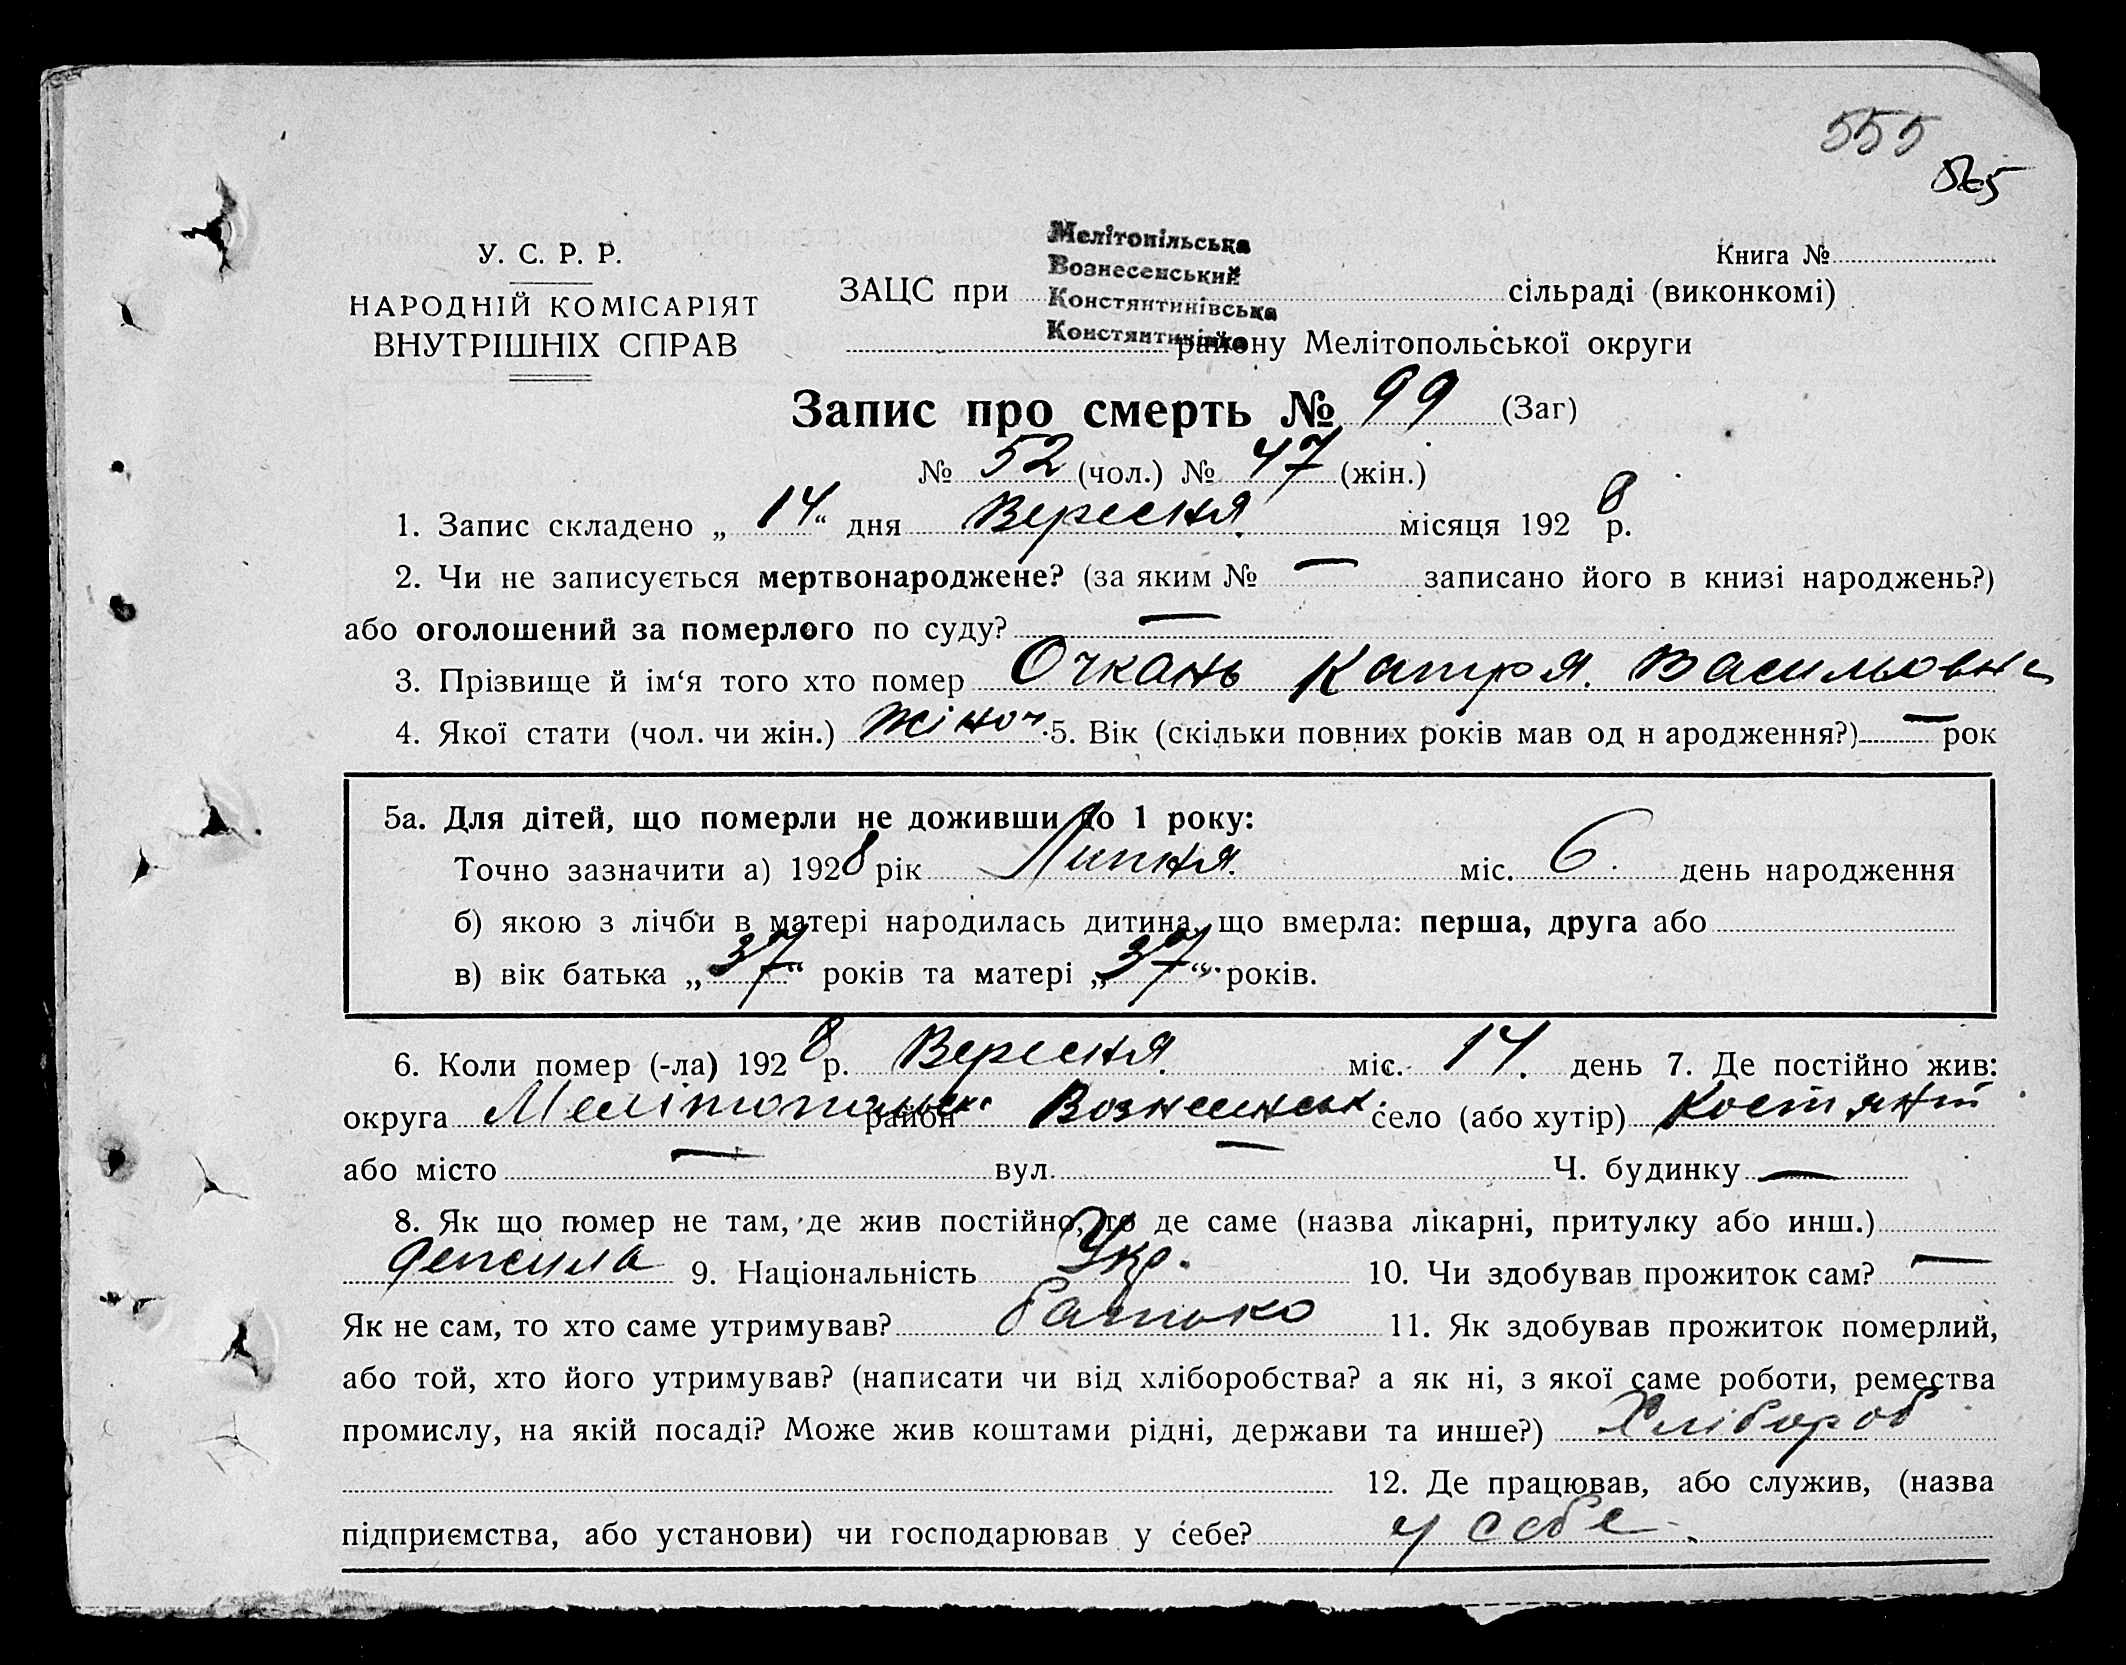 555
565
У. С. Р. Р.
НАРОДНІЙ КОМІСАРІЯТ
ВНУТРІШНІХ СПРАВ
Мелітопільська
Вознесенський
Константинівська
Константинівка
Книга №
ЗАЦС при сільраді (виконкомі)
району Мелітопольської округи
Запис про смерть № 99 (Заг)
№ 52 (чол.) № 47 (жін.)
1. Запис складено „14“ дня Вересня місяця 1928 р.
2. Чи не записується мертвонароджене? (за яким № — записано його в книзі народжень?)
або оголошений за померлого по суду? —
3. Прізвище й ім‘я того хто помер Очкань Катря Васильовна
4. Якої стати (чол. чи жін.) жіноч. 5. Вік (скільки повних років мав од н ародження?) — рок
5а. Для дітей, що померли не доживши до 1 року:
Точно зазначити а) 1928 рік Липня міс. 6 день народження
б) якою з лічби в матері народилась дитина, що вмерла: перша, друга або
в) вік батька „37“ років та матері „37“ років.
6. Коли помер (-ла) 1928 р. Вересня міс. 14 день 7. Де постійно жив:
округа Мелітопольск район Вознесенськ село (або хутір) Костянт
або місто — вул. — Ч. будинку —
8. Як що помер не там, де жив постійно, то де саме (назва лікарні, притулку або инш.)
9. Національність Укр. 10. Чи здобував прожиток сам? —
Як не сам, то хто саме утримував? батько 11. Як здобував прожиток померлий,
або той, хто його утримував? (написати чи від хліборобства? а як ні, з якої саме роботи, ремества
промислу, на якій посаді? Може жив коштами рідні, держави та инше?) Хлібороб
12. Де працював, або служив, (назва
підприємства, або установи) чи господарював у себе? у себе